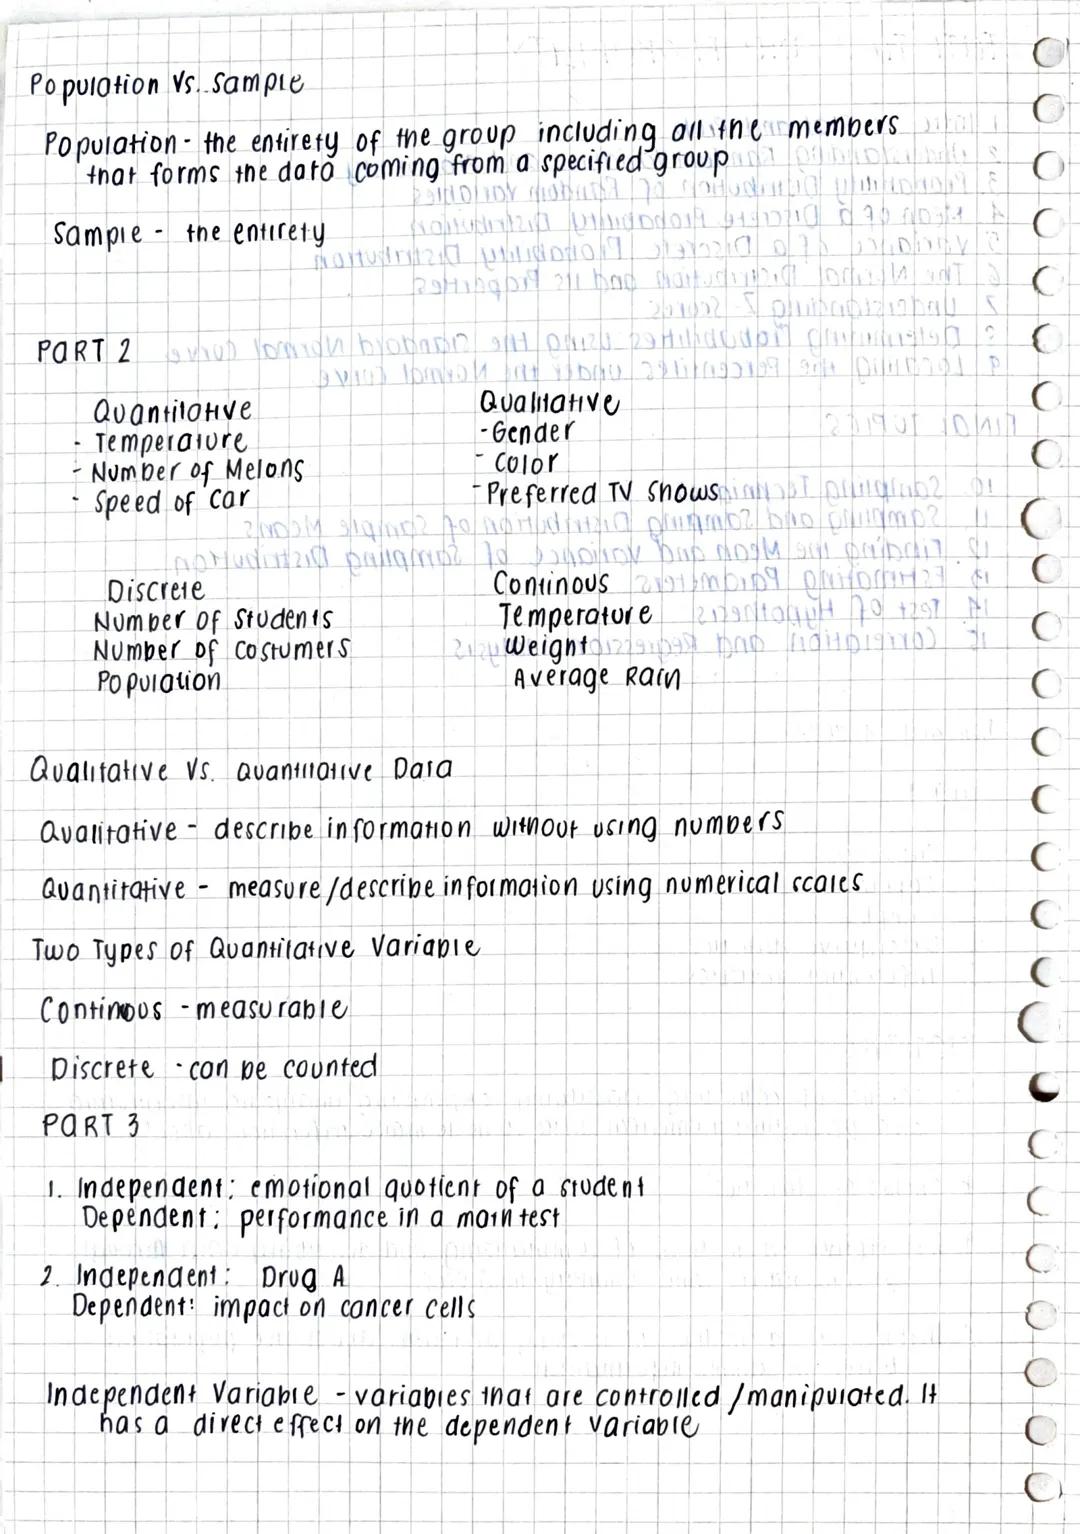 Population Vs. Sample
Population - the entirety of the group including all the members
that forms the data coming from a specified group
Sample - the entirety
PART 2
Quantitative
- Temperature
- Number of Melons
- Speed of car
Qualitative
- Gender
- Color
- Preferred TV Shows
Discrete
Number of Students
Number of Costumers
Population
Continous
Temperature
Weight
Average Rain
Qualitative Vs. Quantitative Data
Qualitative - describe information without using numbers
Quantitative - measure/describe information using numerical scales
Two Types of Quantitative Variable
Continous - measurable
Discrete - can be counted
PART 3
1. Independent: emotional quotient of a student
Dependent: performance in a math test
2. Independent: Drug A
Dependent: impact on cancer cells
Independent Variable - variables that are controlled/manipulated. It
has a direct effect on the dependent variable